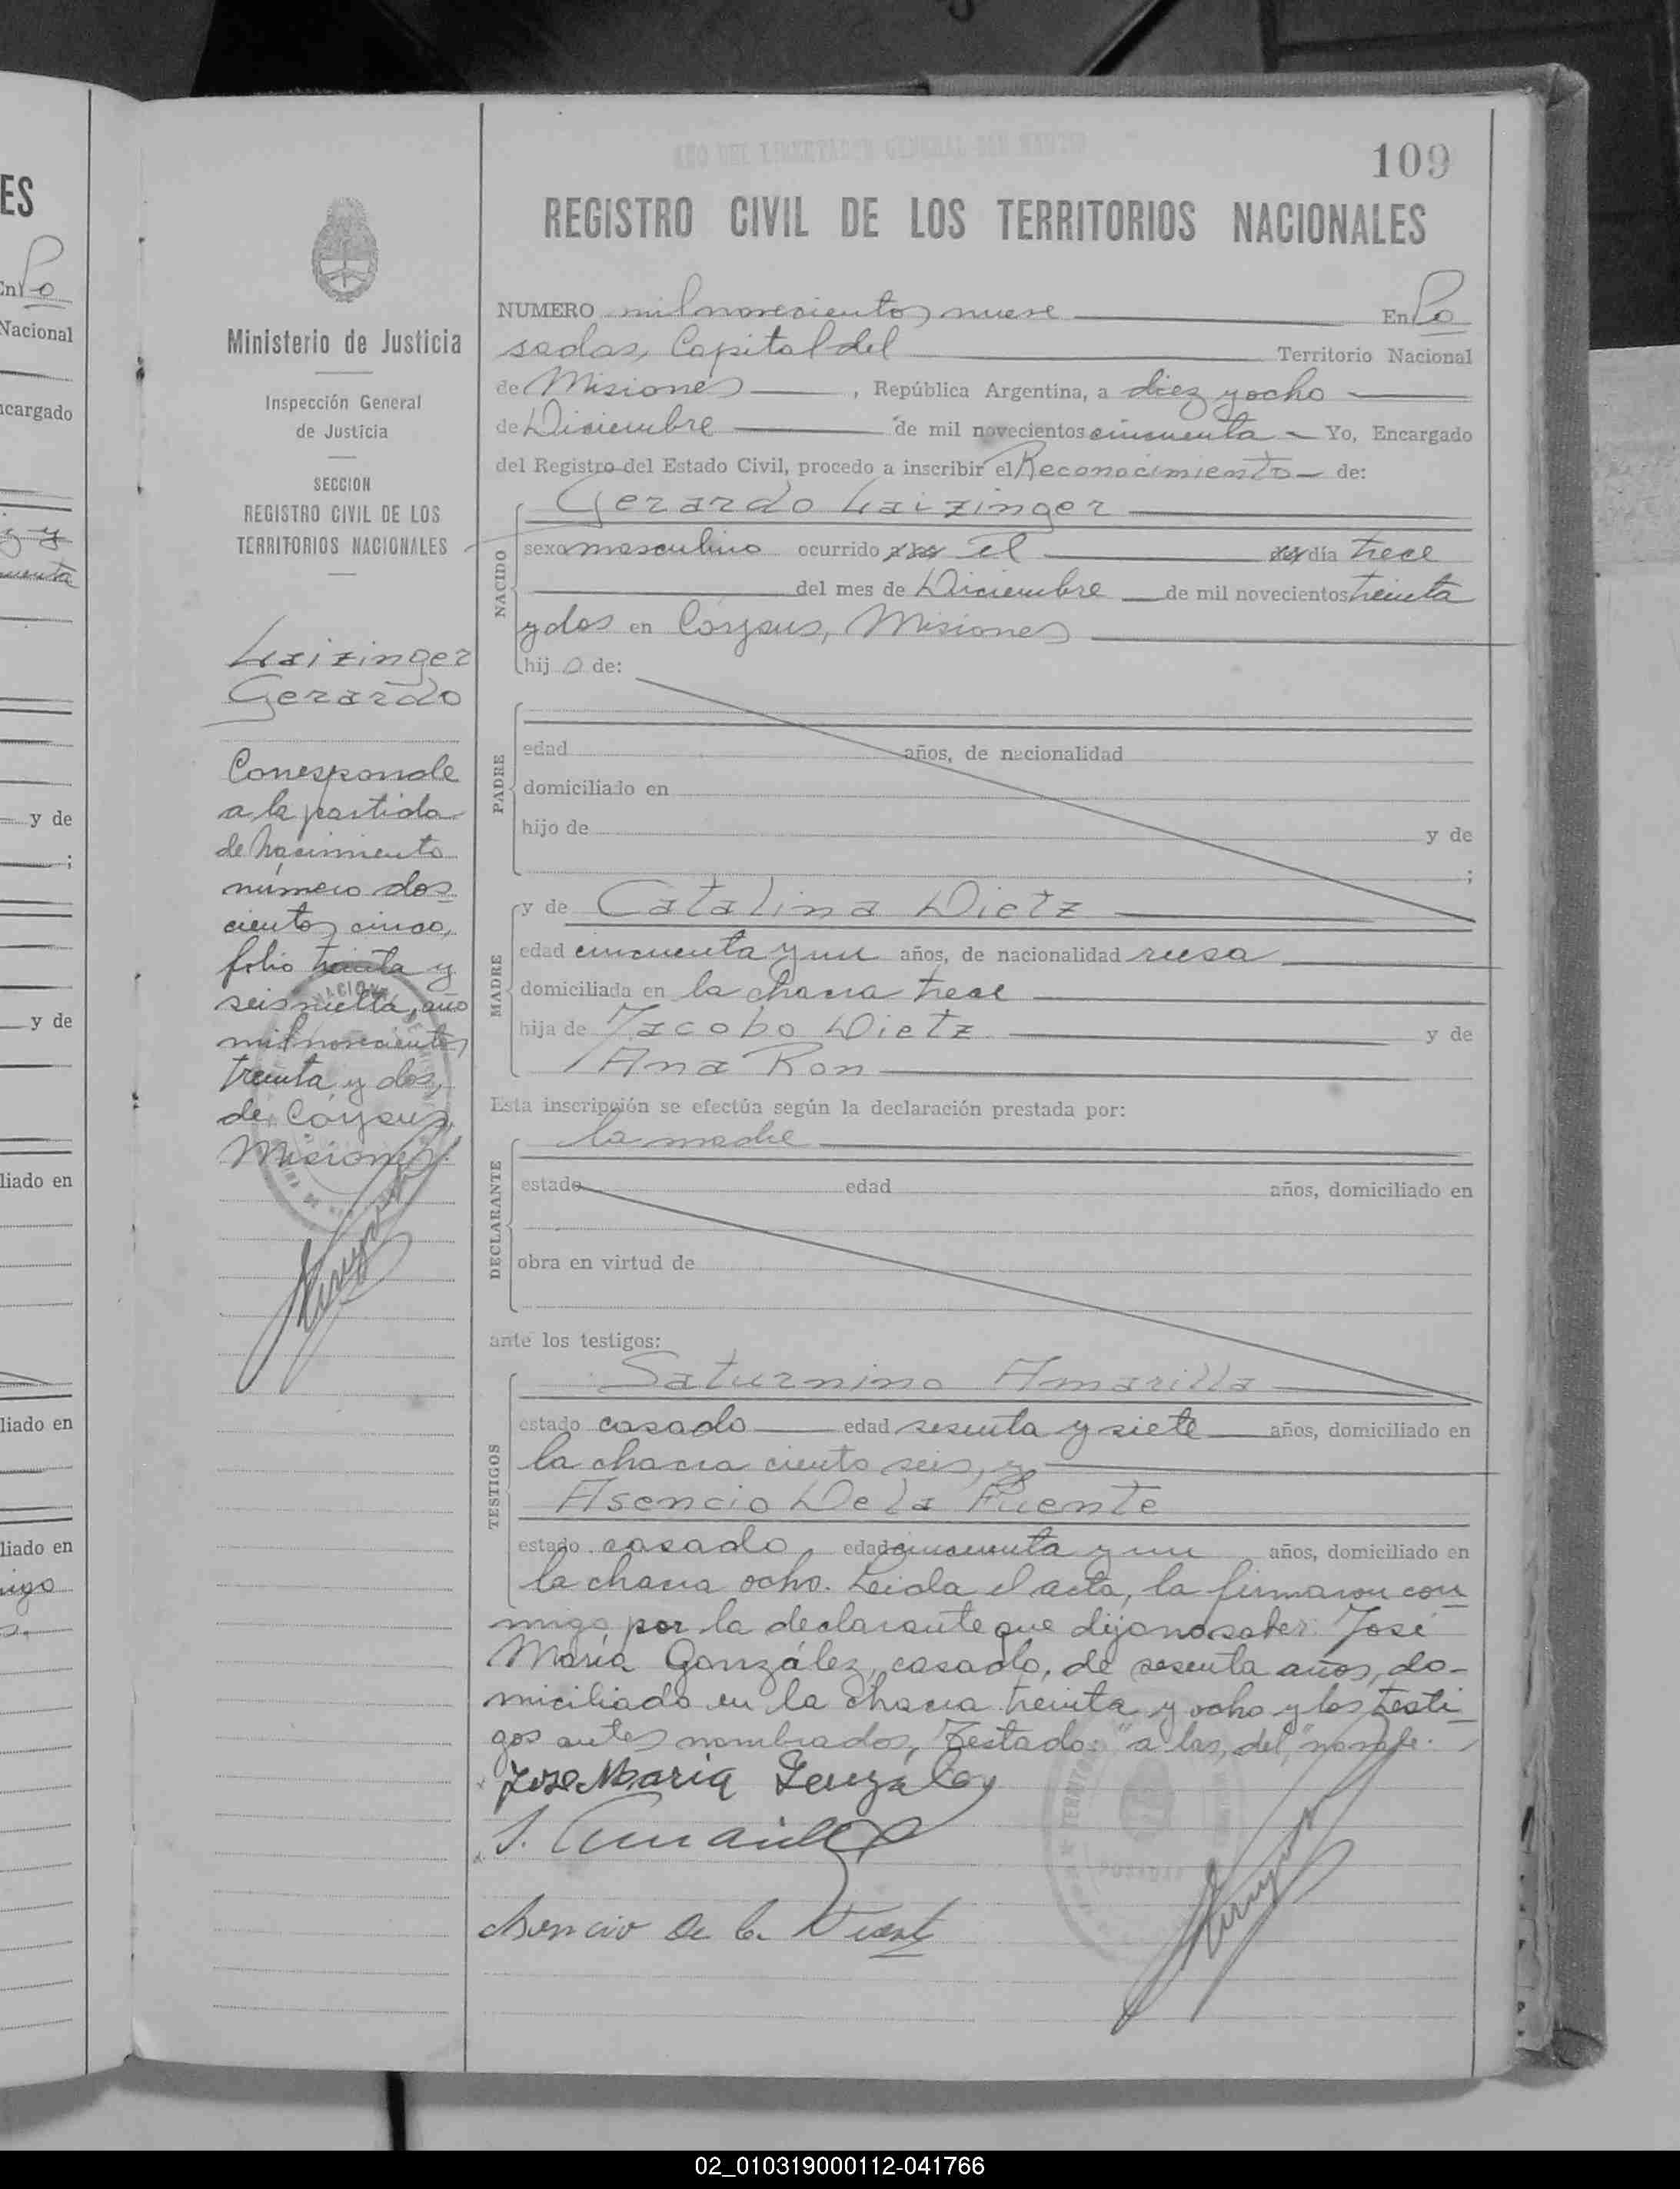 ES
En Po
Nacional
ncargado
y de
;
y de
liado en
liado en
liado en
migo
Ministerio de Justicia
Inspección General
de Justicia
SECCION
REGISTRO CIVIL DE LOS
TERRITORIOS NACIONALES
Laizinger
Gerardo
Corresponde
a la partida
de Nacimiento
número dos
cientos cinco,
folio treinta y
seis vuelta, año
mil novecientos
treinta y dos,
de Córpus,
Misiones.
AÑO DEL LIBERTADOR GENERAL SAN MARTIN
109
REGISTRO CIVIL DE LOS TERRITORIOS NACIONALES
NUMERO mil novecientos nueve En Po
sadas, Capital del Territorio Nacional
de Misiones, República Argentina, a diez y ocho
de Diciembre de mil novecientos cincuenta Yo, Encargado
del Registro del Estado Civil, procedo a inscribir el Reconocimiento de:
Gerardo Laizinger
NACIDO
sexo masculino ocurrido a las el del día trece
del mes de Diciembre de mil novecientos treinta
y dos en Córpus, Misiones
hijo de:
PADRE
edad años, de nacionalidad
domiciliado en
hijo de y de
;
MADRE
y de Catalina Dietz
edad cincuenta y un años, de nacionalidad rusa
domiciliada en la chacra trece
hija de Jacobo Dietz y de
Ana Ron
Esta inscripción se efectúa según la declaración prestada por:
DECLARANTE
la madre
estado edad años, domiciliado en
obra en virtud de
ante los testigos:
TESTIGOS
Saturnino Amarilla
estado casado edad sesenta y siete años, domiciliado en
la chacra ciento seis, y
Asencio De la Fuente
estado casado, edad cincuenta y un años, domiciliado en
la chacra ocho. Leida el acta, la firmaron con
migo por la declarante que dijo no saber José
María González, casado, de sesenta años, do-
miciliado en la chacra treinta y ocho y los testi
gos antes nombrados, Testado: "a las, del," no vale.
José Maria Gonzalez
S. Amarilla
Asencio De la Fuente
02_010319000112-041766